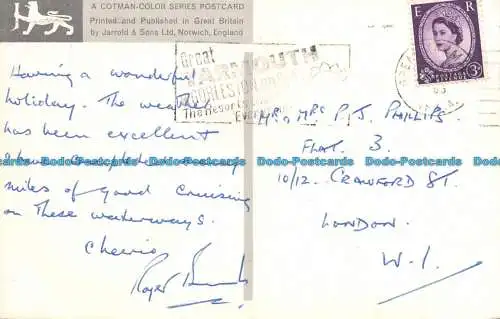 A COTMAN-COLOR SERIES POSTCARD
Printed and Published in Great Britain
by Jarrold & Sons Ltd, Norwich, England
E R
POSTAGE
3D
Great
YARMOUTH
GORLESTON
The Resorts
Having a wonderful
holiday. The weather
has been excellent
miles of good cruising
on these waterways.
Cheerio
Roger
MR & MRS P.J. PHILLIPS.
FLAT. 3.
10/12. CRAWFORD ST.
LONDON.
W.1.
Dodo-Postcards Dodo-Postcards Dodo-Postcards Dodo-Postcards Dodo-Postcards